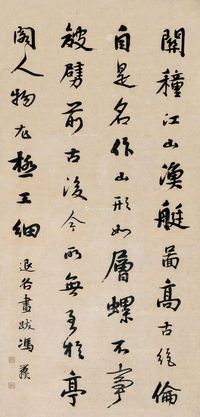 關穜江山漁艇圖高古絕倫
自是名作山形如層螺不事
皴劈前古後今所無至於亭
閣人物尤極工細
退谷畫跋馮義